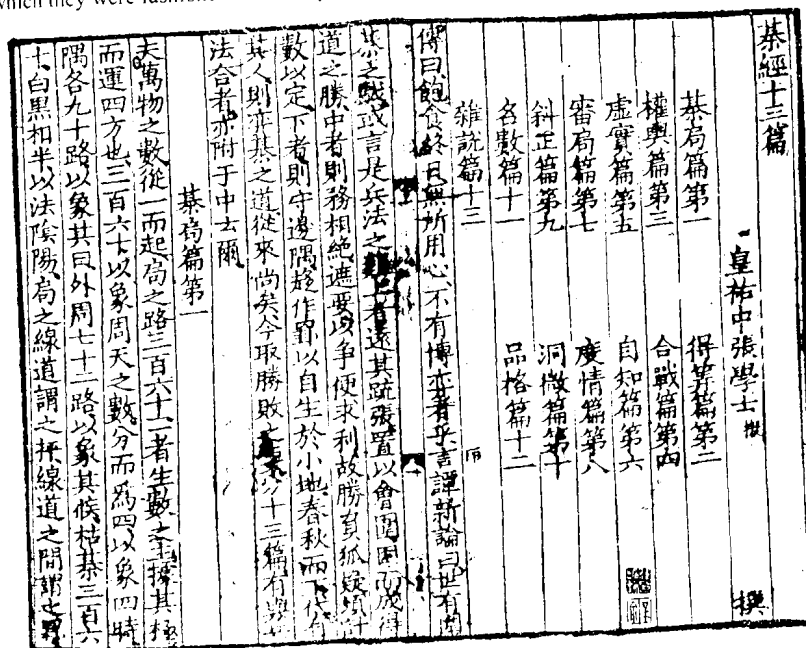 which they were
棊經十三篇
皇祐中張學士 撰
棊局篇第一 得筭篇第二
權輿篇第三 合戰篇第四
虛實篇第五 自知篇第六
審局篇第七 度情篇第八
斜正篇第九 洞微篇第十
名數篇十一 品格篇十二
雜說篇十三
傳曰飽食終日無所用心不有博弈者乎 譚新論曰世有圍
棊之戲或言是兵法之 上者遠其疏張置以會圍因而成得
道之勝中者則務相絕遮要以爭便求利故勝負狐疑須計
數以定下者則守邊隅趍作罫以自生於小地春秋而下代有
其人則弈棊之道從來尚矣今取勝敗之 十三篇有與
法合者亦附于中云爾
棊局篇第一
夫萬物之數從一而起局之路三百六十一者生數之主據其極
而運四方也三百六十以象周天之數分而爲四以象四時
隅各九十路以象其日外周七十二路以象其候枯棊三百六
十白黑相半以法陰陽局之線道謂之枰線道之間謂之罫